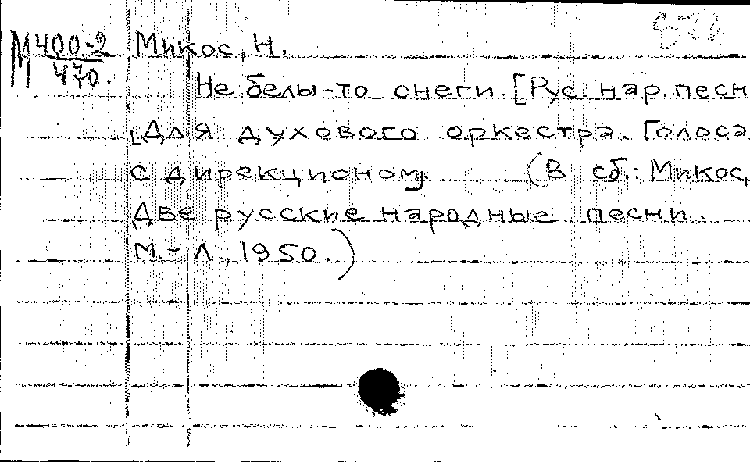 М 400-2 Микос, Н.
470.
Не белы-то снеги. [Рус. нар. песн
[Для духового оркестра. Голоса
с дирекционом]. (В сб.: Микос,
Две русские народные песни.
М.-Л., 1950.)